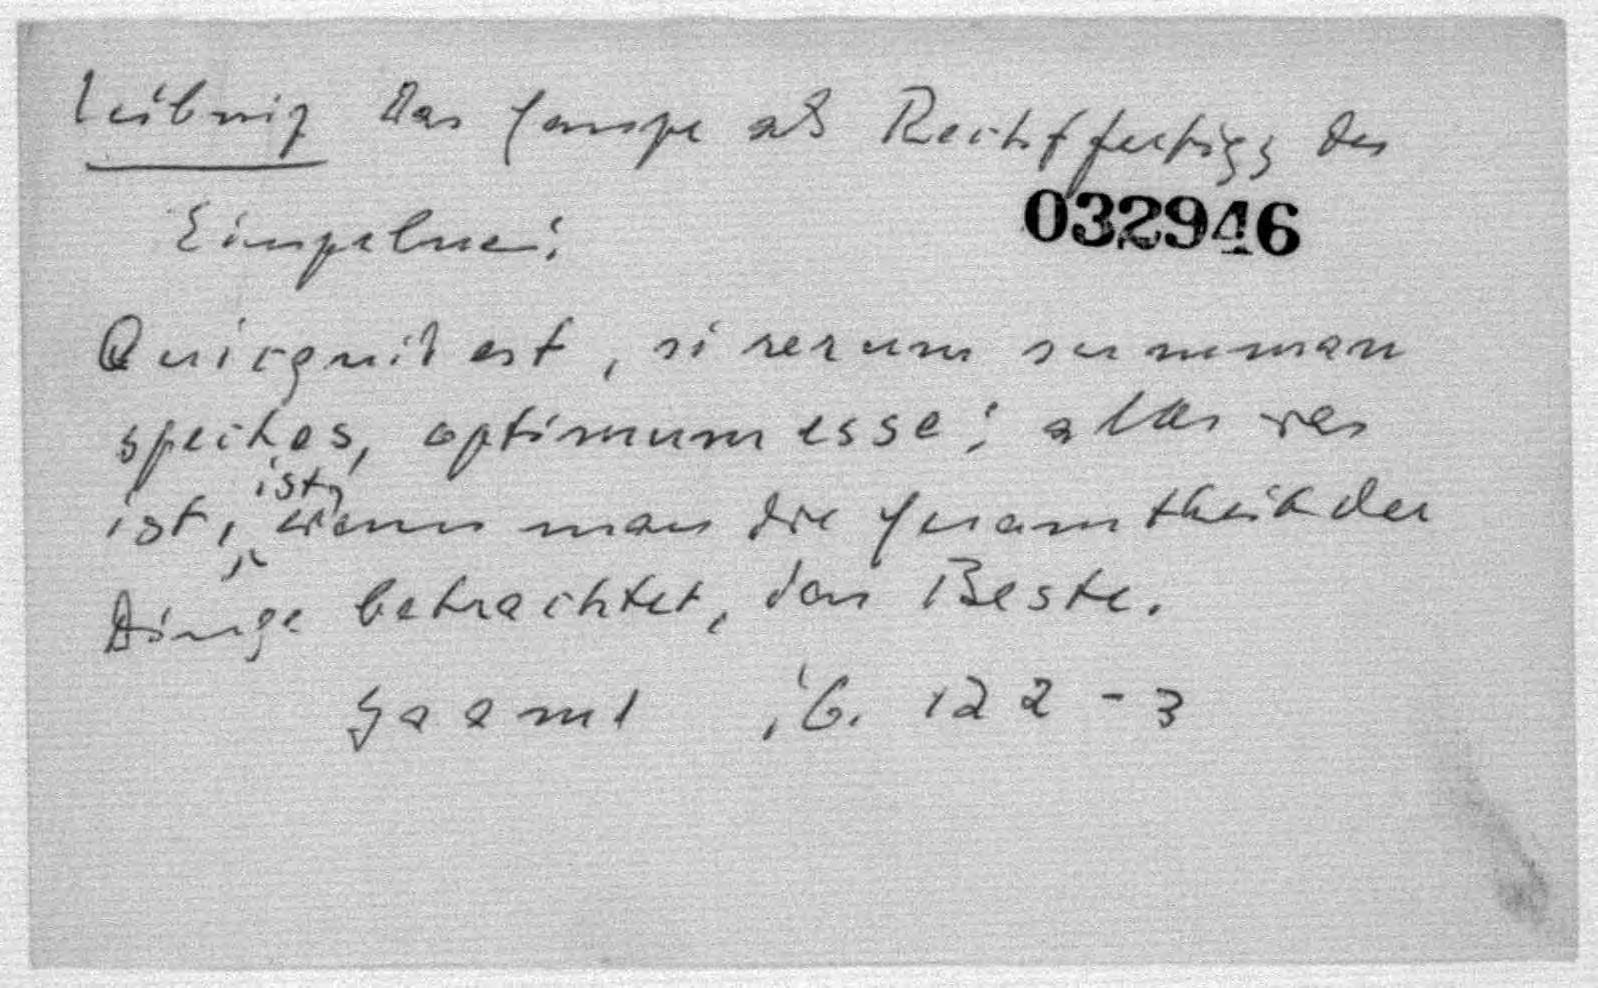 Leibniz Das Ganze als Rechtffertigg des
032946
Einzelnen:
Quicquid est, si rerum summam
spectes, optimum esse; alles was
ist, ist, wenn man die Gesamtheit der
Dinge betrachtet, das Beste.
122-3